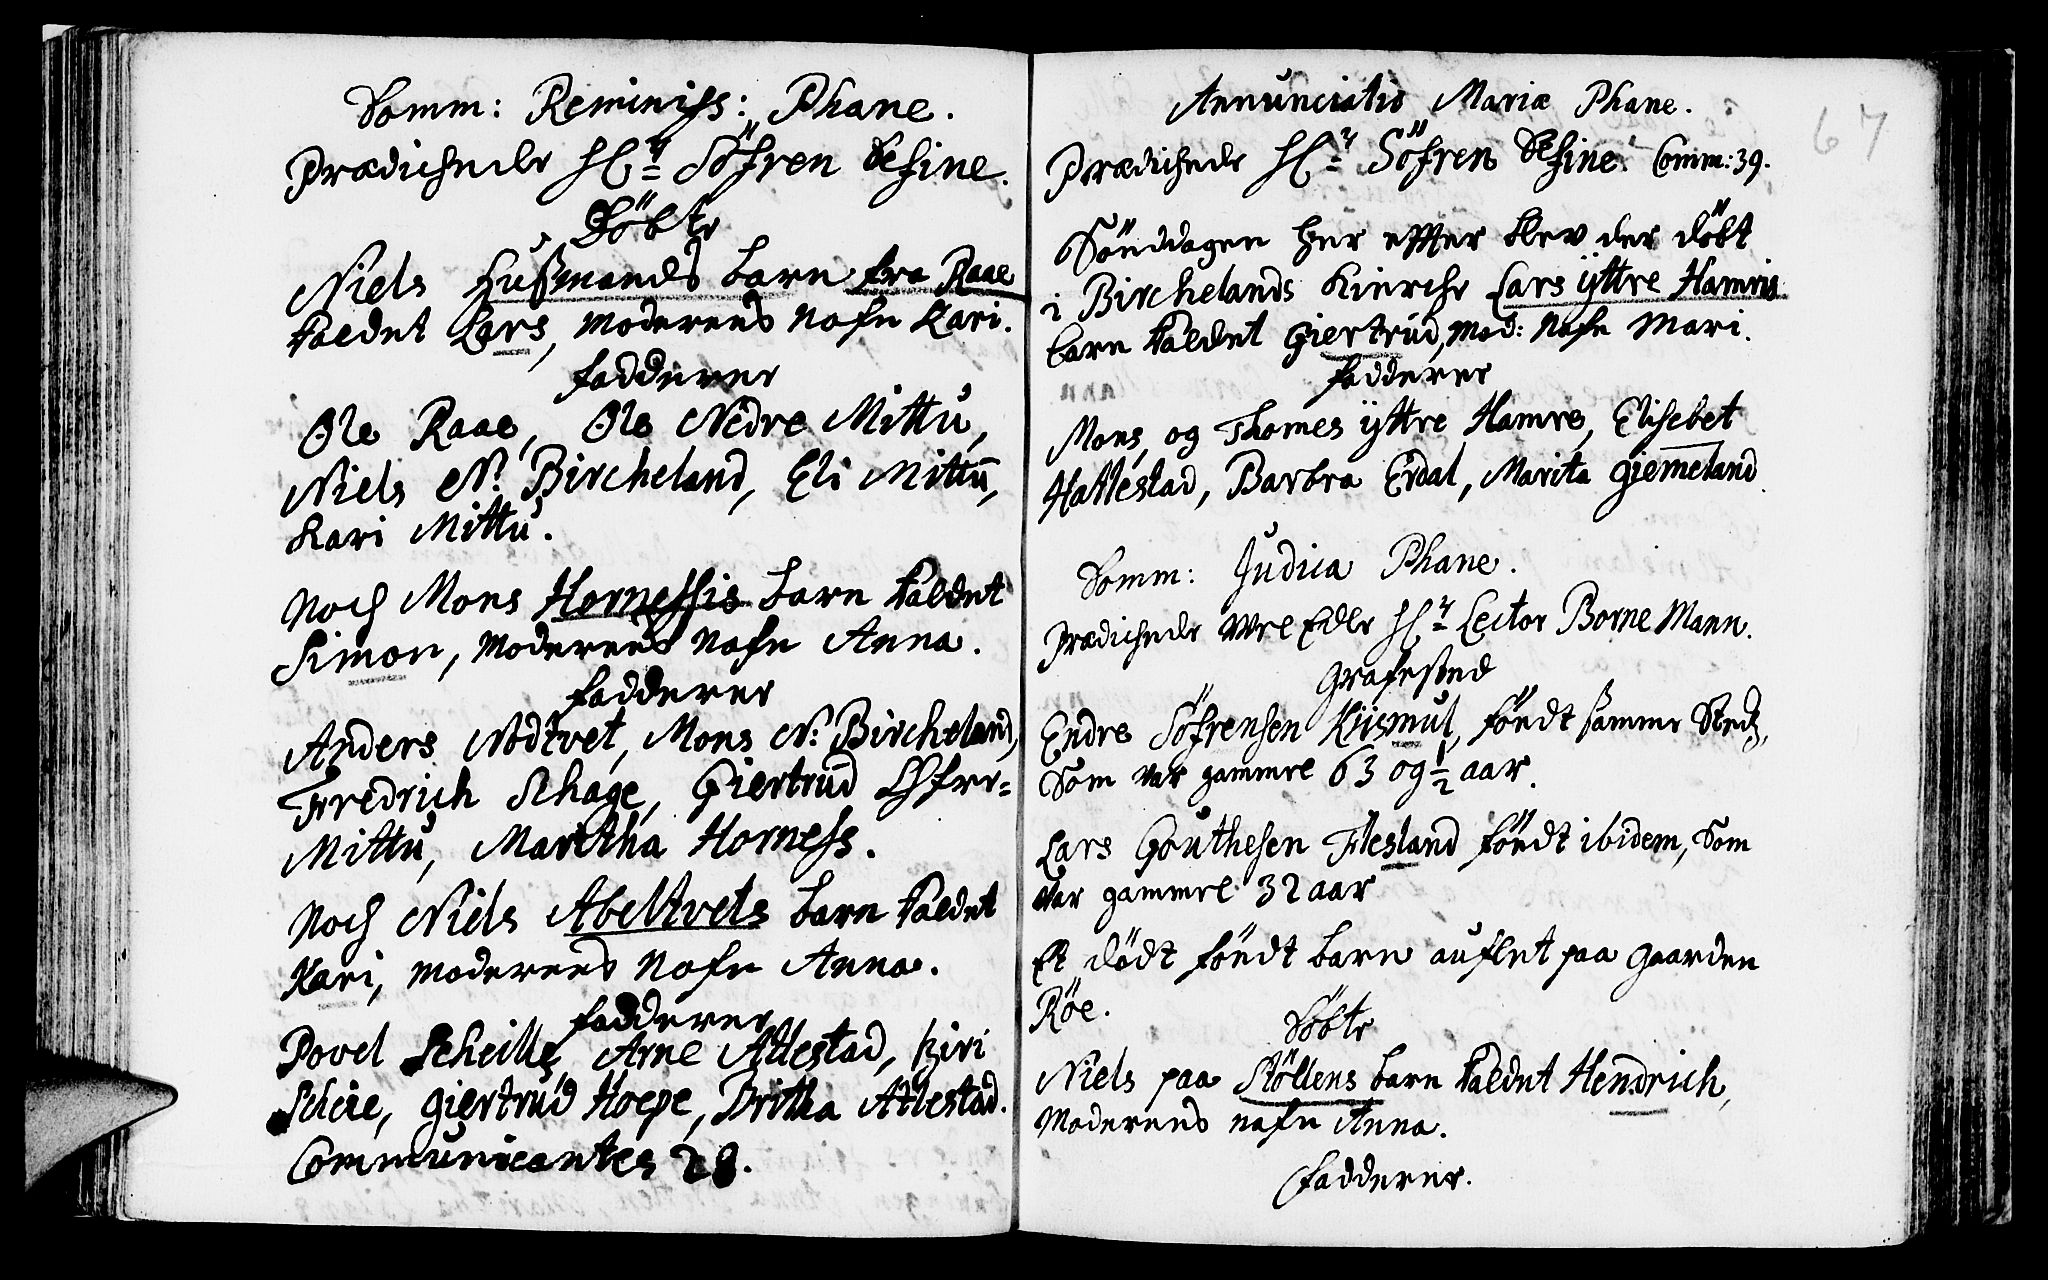 Domm: Reminiss: Phane.
Prædichede Hr= Söfren Schine.
Döbte
Niels Hußmands barn fra Raae
kaldet Lars, Moderens Nafn Kari.
fadderer
Ole Raae, Ole Nedre Mittu,
Niels N: Bircheland, Eli Mittu,
Kari Mittu.
Noch Mons Hornessis barn kaldet
Simon, Moderens Nafn Anna.
fadderer
Anders Nödtvet, Mons N: Bircheland,
Fredrich Schage, Giertrud
Mittu, Maritha Horness.
Noch Niels Abeltvets barn kaldet
Kari, Moderens Nafn Anna.
fadderer
Povel Scheille, Arne Atlestad, Kiri
Scheie, Giertrud Hoepe, Britha Atlestad.
Communicantes 28.
Annunciatio Mariæ Phane.
67
Prædichede Hr= Söfren Schine. Comm: 39.
Sönddagen her effter blev der döbt
i Birchelands Kirche Lars ÿttre Hamris
barn kaldet Giertrud, Mod: Nafn Mari.
fadderer
Mons, og Thomes ÿttre Hamre, Elisebet
Hatlestad, Barbra Erdal, Marita Giemeland.
Domm: Judica Phane.
Prædichede Wel Edle Hr= Lector Borne Mann.
Grafested
Endre Söfrensen Kiismul, föndt samme Stedz,
Som var gammel 63 og 1/2 aar.
Lars Gouthesen Flesland föndt ibidem, Som
var gammel 32 aar
Et dödt föndt barn auflet paa gaarden
Röe.
Döbte
Niels paa Stöllens barn kaldet Hendrich,
Moderens nafn Anna.
Fadderer.